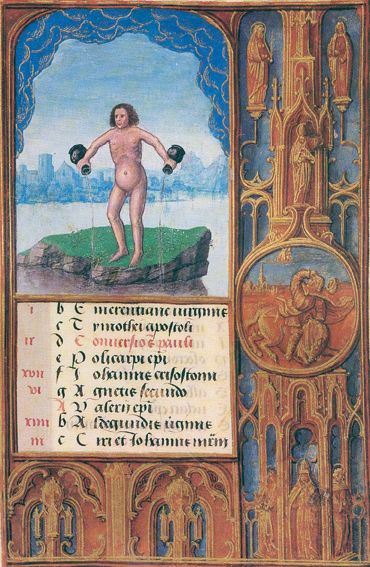 i b Emerentiane uirginis
c Tymothei apostoli
ix d Conuersio s pauli
e Policarpi epi
xvii f Iohannis crisostomi
vi g Agnetis secundo
A Valerii epi
xiiii b Aldegundis uirginis
iii c Ciri et Iohannis mrm